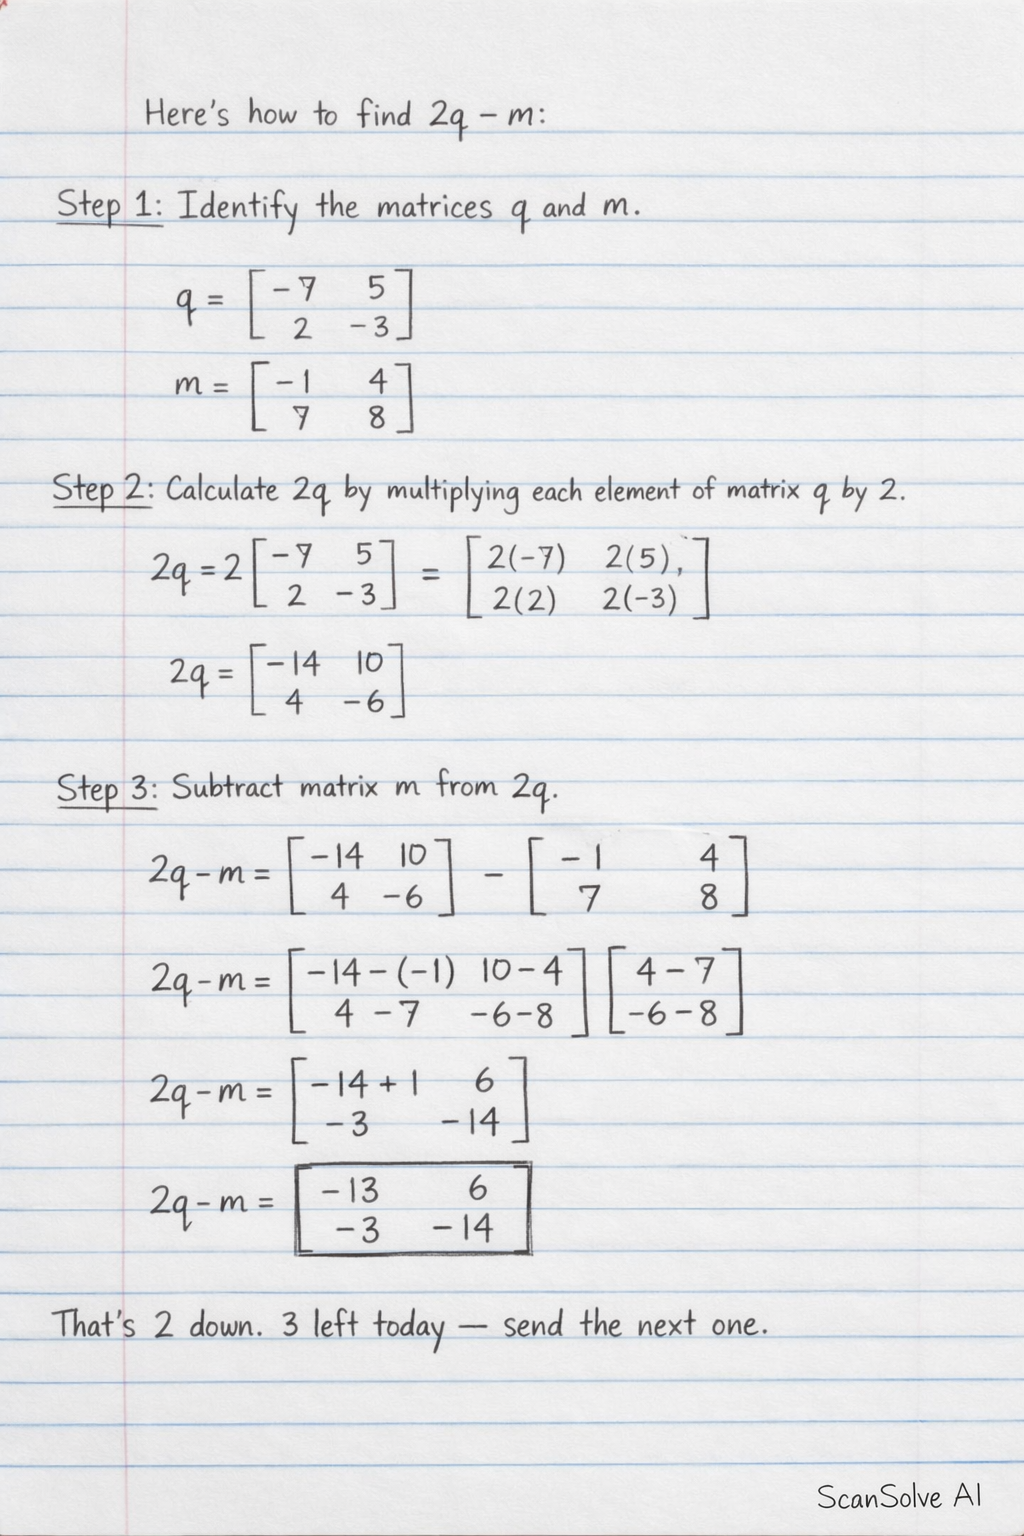 Here's how to find 2q − m:
Step 1: Identify the matrices q and m.
q = [ −7 5
2 −3 ]
m = [ −1 4
7 8 ]
Step 2: Calculate 2q by multiplying each element of matrix q by 2.
2q = 2 [ −7 5
2 −3 ] = [ 2(−7) 2(5),
2(2) 2(−3) ]
2q = [ −14 10
4 −6 ]
Step 3: Subtract matrix m from 2q.
2q − m = [ −14 10
4 −6 ] − [ −1 4
7 8 ]
2q − m = [ −14 − (−1) 10 − 4
4 − 7 −6 − 8 ] [ 4 − 7
−6 − 8 ]
2q − m = [ −14 + 1 6
−3 −14 ]
2q − m = [ −13 6
−3 −14 ]
That's 2 down. 3 left today — send the next one.
ScanSolve AI